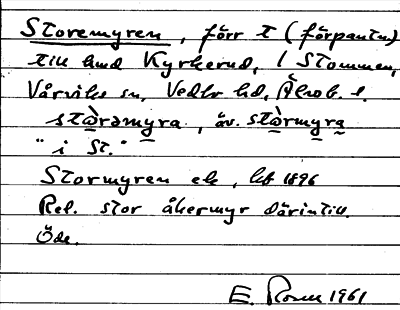 Storemyren, förr t (förpantn.)
till hmd Kyrkerud, l Stommen,
Vårviks sn, Vedbo hd, Älvsb. l.
stòrəmyra, äv. stòrmyra
"i St."
Stormyren ek, kb 1896
Rel. stor åkermyr därintill.
Öde.
E. Rosen 1961